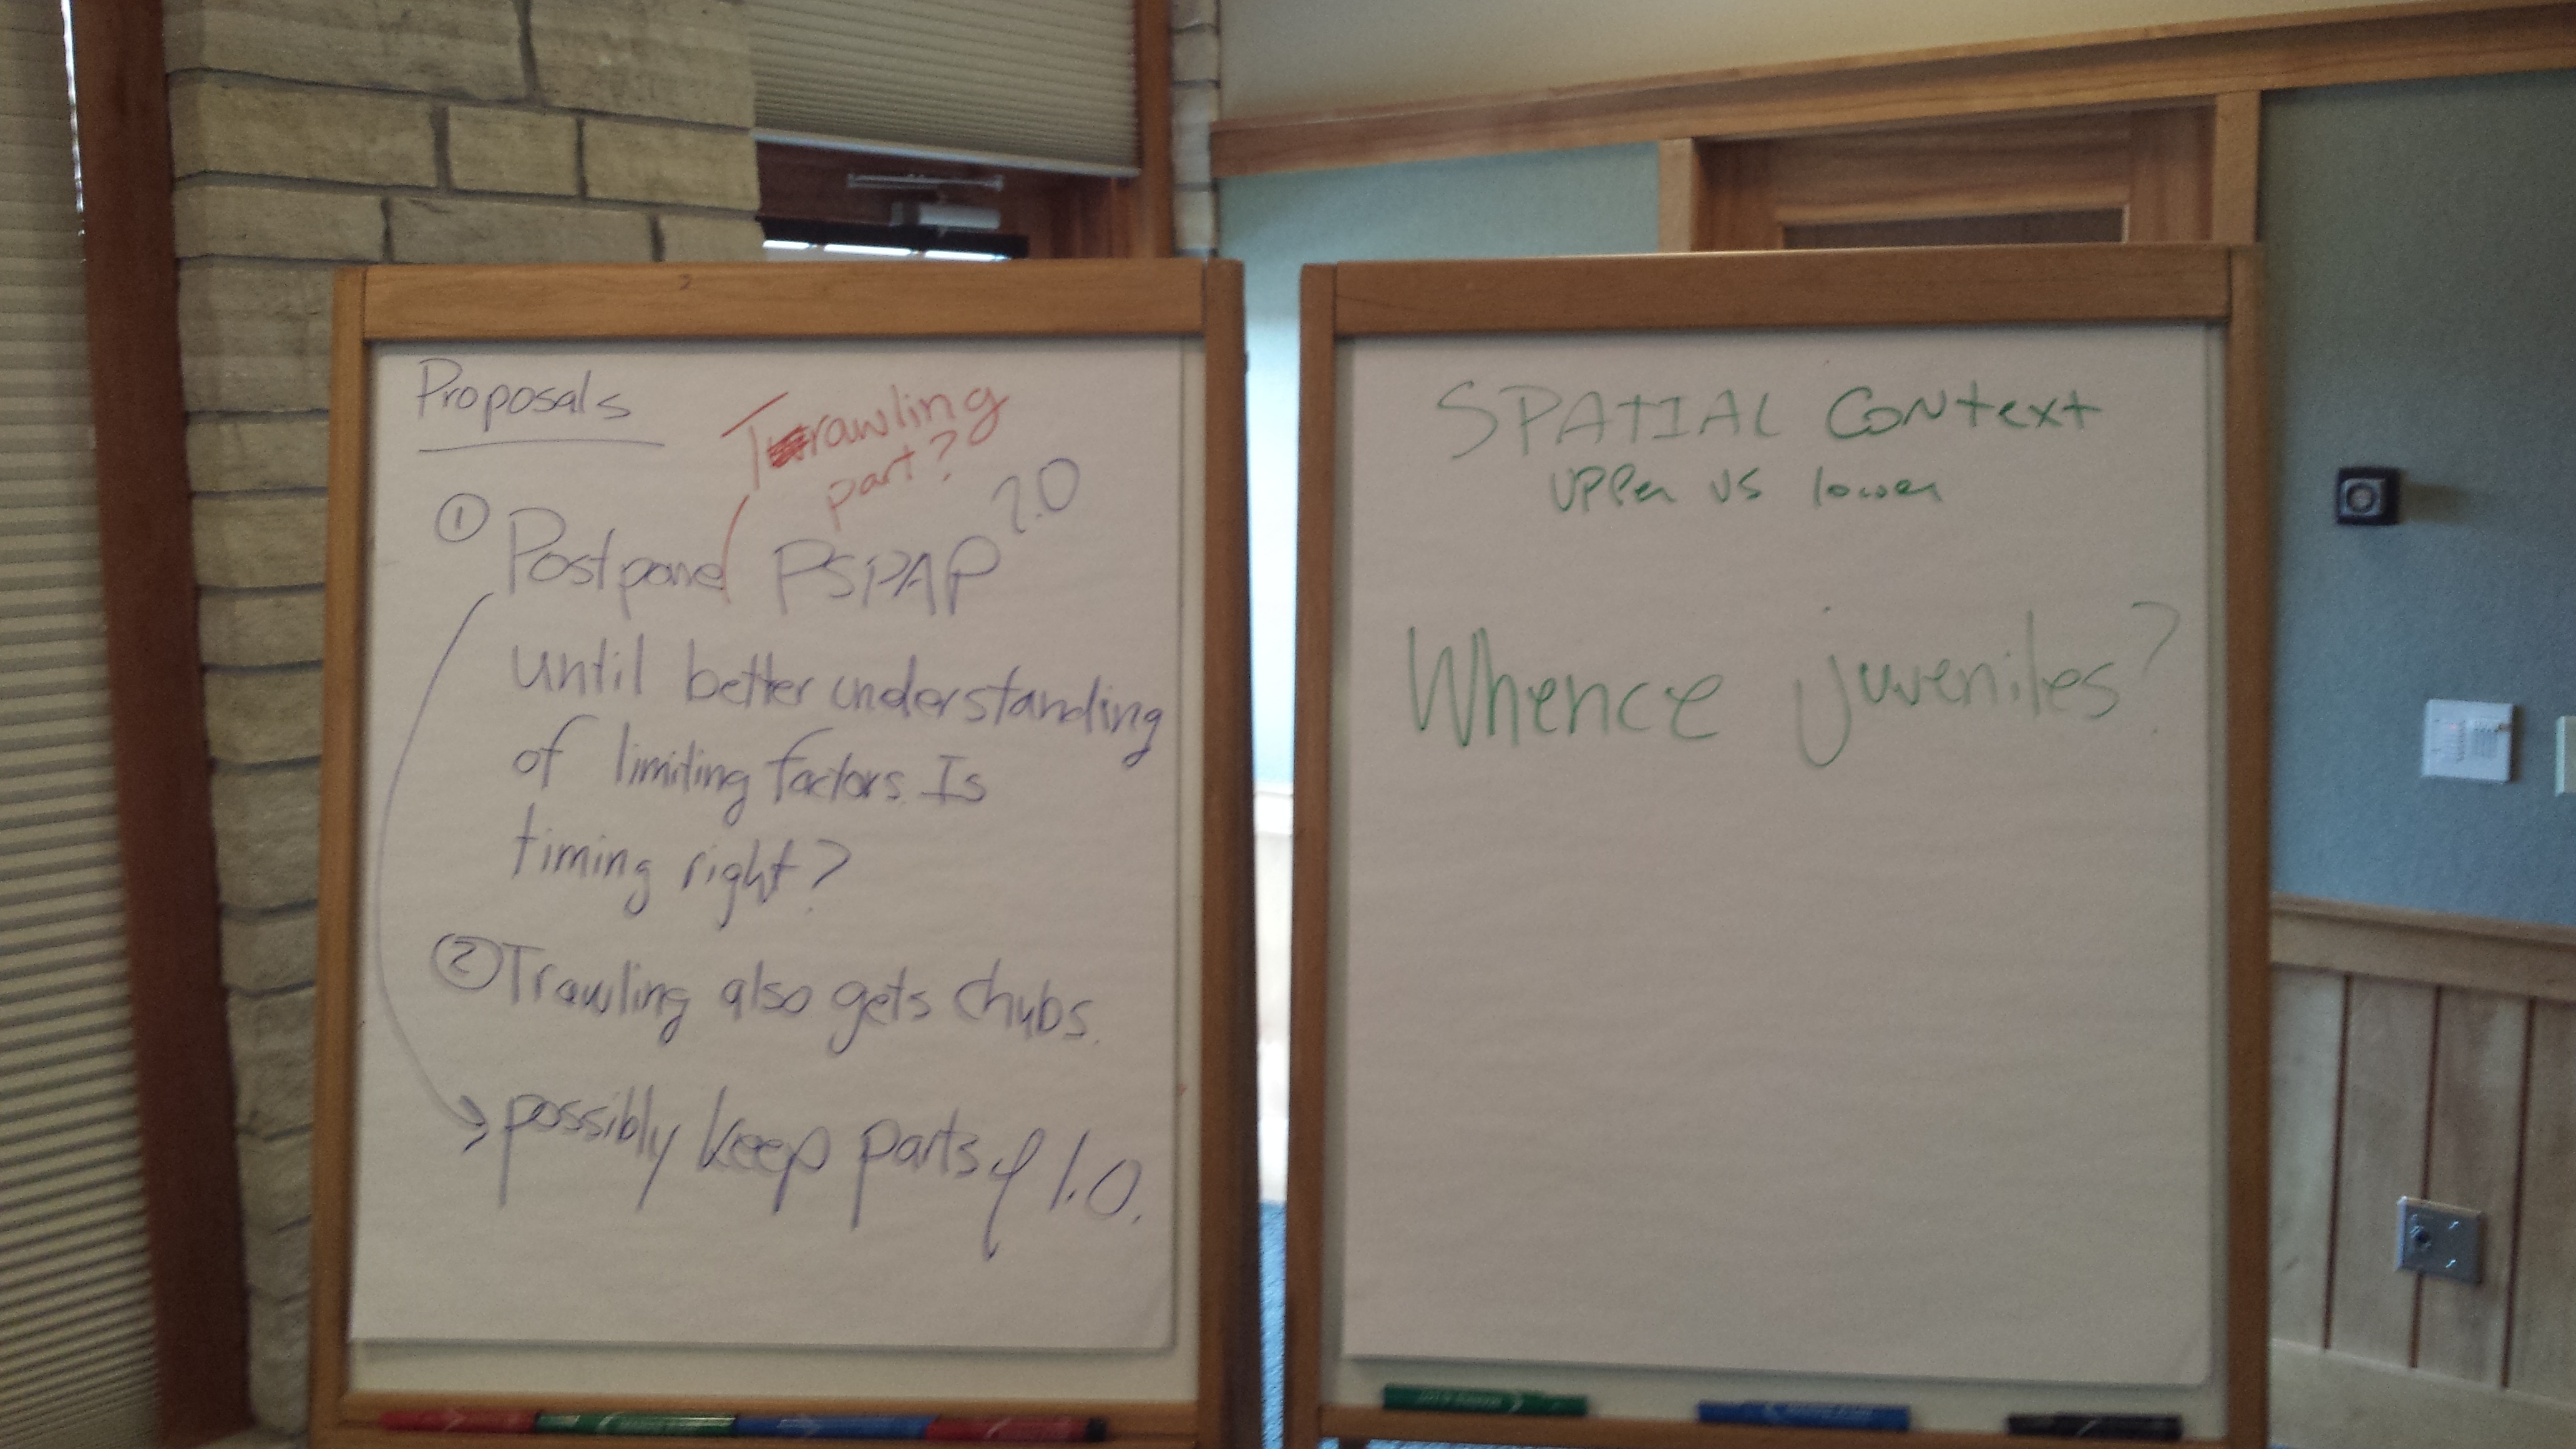 Proposals
Trawling
part?
① Postpone PSPAP 2.0
until better understanding
of limiting factors. Is
timing right?
② Trawling also gets chubs.
→ possibly keep parts of 1.0.
SPATIAL CONtext
UPPer vs lower
Whence juveniles?